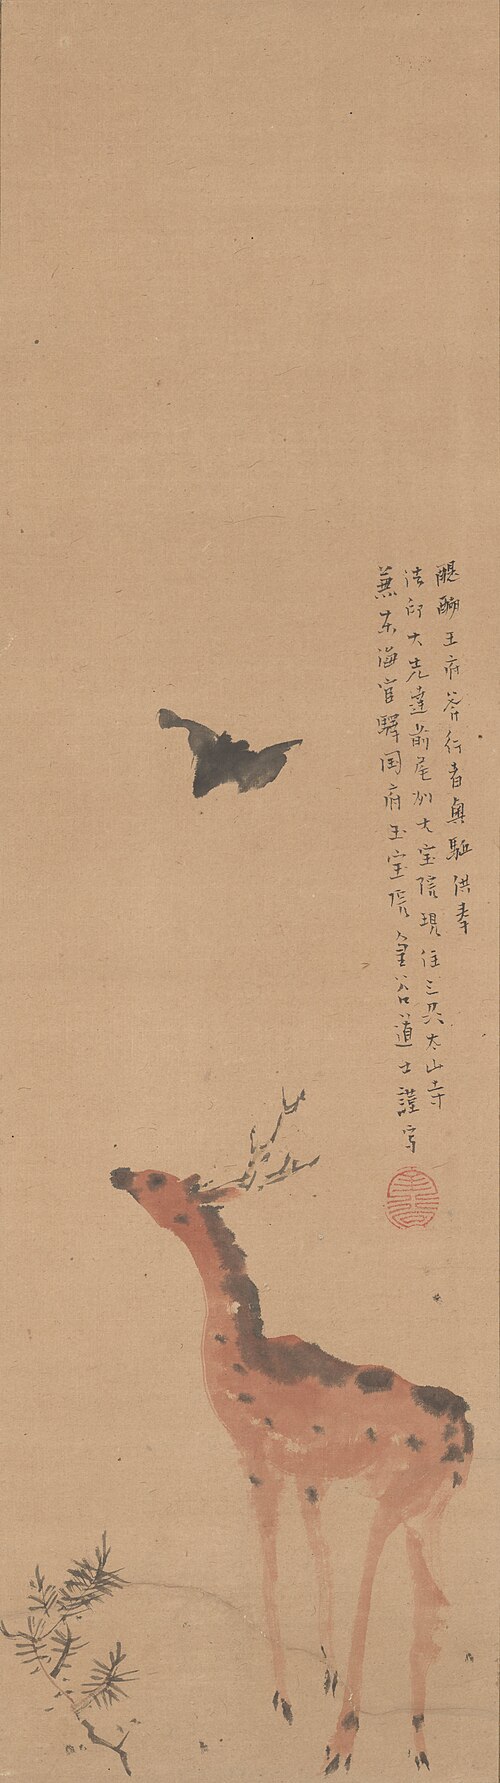 醍醐王府斧行者奠驅供奉
法印大先達前尾州大宝院現住三界太山寺
兼東海官驛国府玉宝院金谷道士謹写